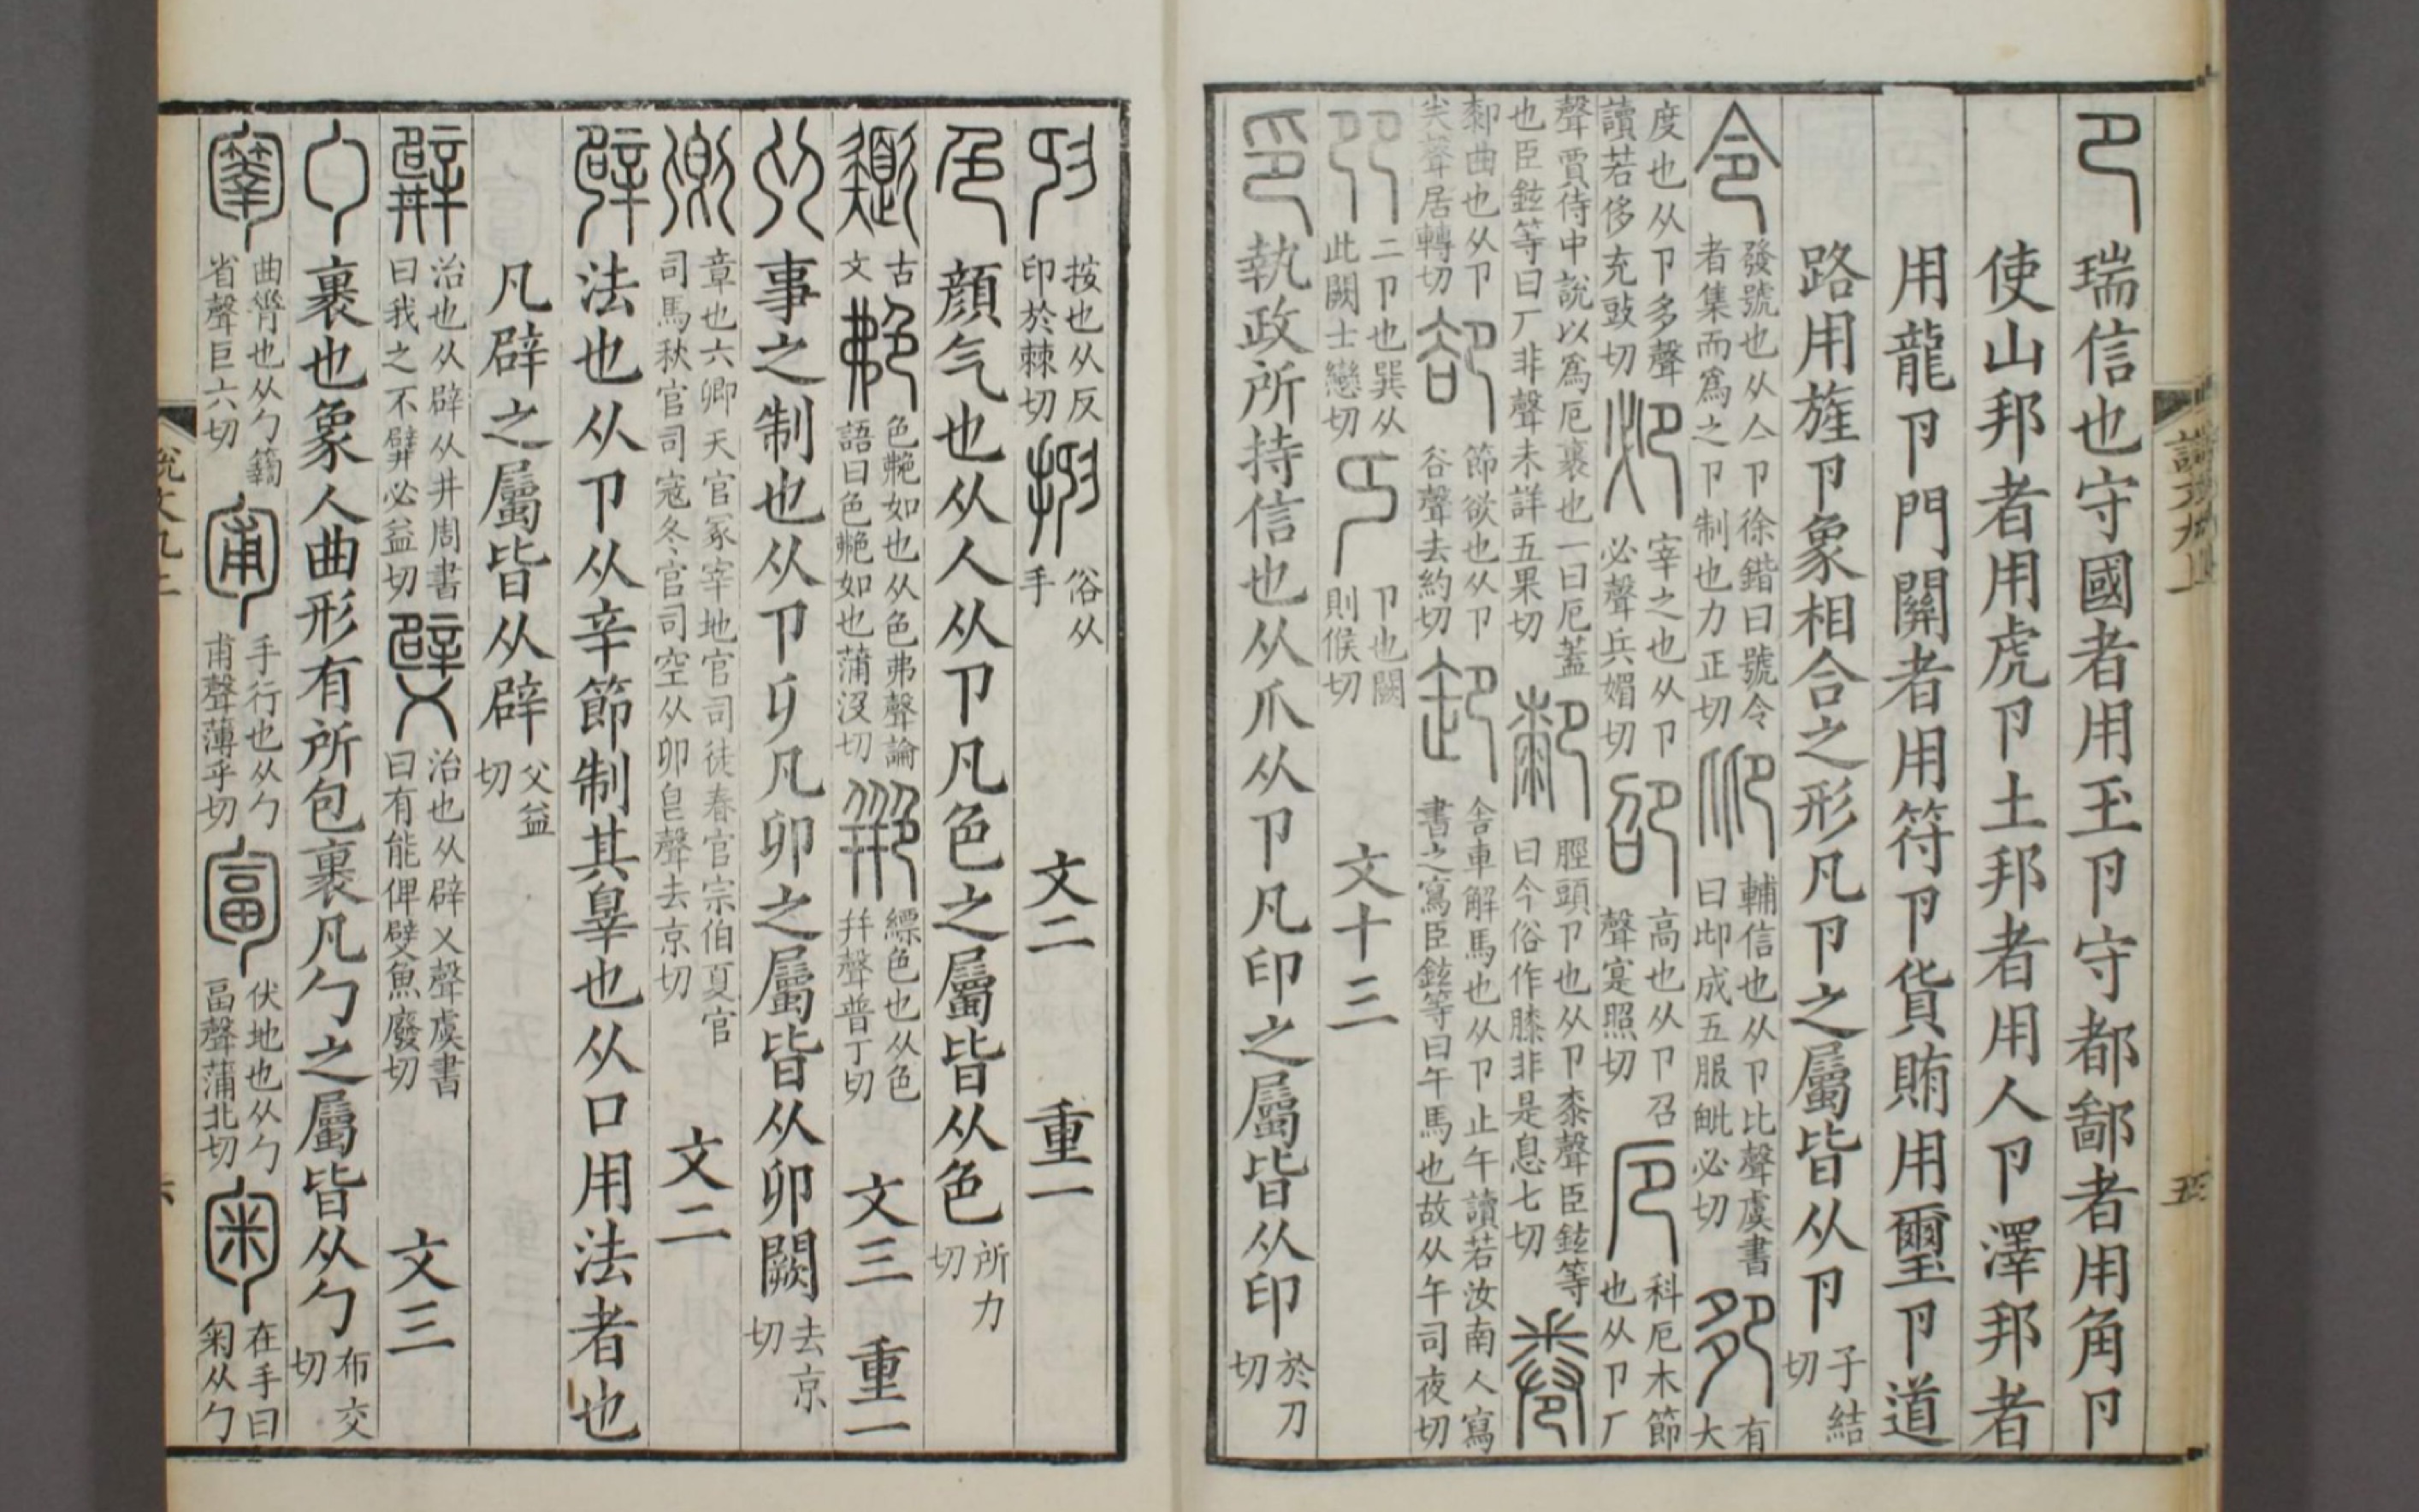 卪瑞信也守國者用玉卪守都鄙者用角卪
使山邦者用虎卪土邦者用人卪澤邦者
用龍卪門關者用符卪貨賄用璽卪道
路用旌卪象相合之形凡卪之屬皆从卪子結切
令發號也从亼卪徐鍇曰號令者集而爲之卪制也力正切𠨒輔信也从卪比聲虞書曰𠨒成五服毗必切𠨘有大
度也从卪多聲讀若侈充豉切𠨍宰之也从卪必聲兵媚切卲高也从卪召聲寔照切厄科厄木節也从卪厂
聲賈侍中說以爲厄裹也一曰厄蓋也臣鉉等曰厂非聲未詳五果切厀脛頭卪也从卪桼聲臣鉉等曰今俗作膝非是息七切卷
厀曲也从卪𢍏聲居轉切卻節欲也从卪谷聲去約切卸舍車解馬也从卪止午讀若汝南人寫書之寫臣鉉等曰午馬也故从午司夜切
𠨎二卪也巽从此闕士戀切𠨐卪也闕則候切文十三
印執政所持信也从爪从卪凡印之屬皆从印於刃切
𠨔按也从反印於棘切抑俗从手文二重一
色顏气也从人从卪凡色之屬皆从色所力切
𩒼古文艴色艴如也从色弗聲論語曰色艴如也蒲沒切艵縹色也从色幷聲普丁切文三重一
𠨪事之制也从卪𠨎凡𠨪之屬皆从𠨪闕去京切
卿章也六卿天官冢宰地官司徒春官宗伯夏官司馬秋官司寇冬官司空从𠨪皀聲去京切文二
辟法也从卪从辛節制其辠也从口用法者也
凡辟之屬皆从辟父益切
𨐨治也从辟从井周書曰我之不𨐨必益切𨐢治也从辟乂聲虞書曰有能俾𨐢魚廢切文三
勹裹也象人曲形有所包裹凡勹之屬皆从勹布交切
𥷚曲脊也从勹𥷚省聲巨六切匍手行也从勹甫聲薄乎切匐伏地也从勹畐聲蒲北切匊在手曰匊从勹